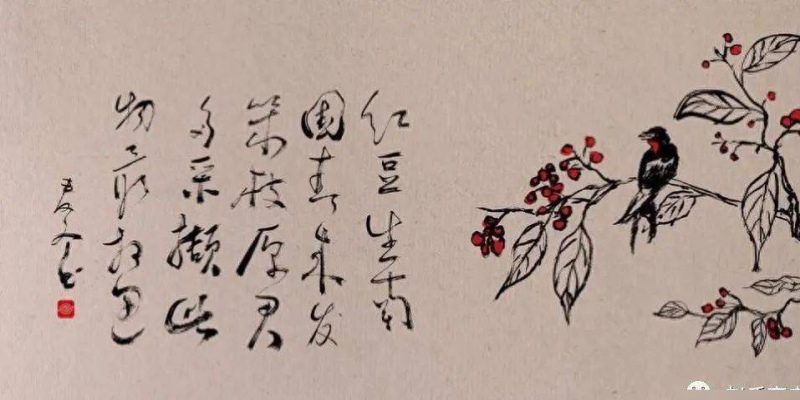 红豆生南
國春来发
枝原君
多采擷此
物最相思